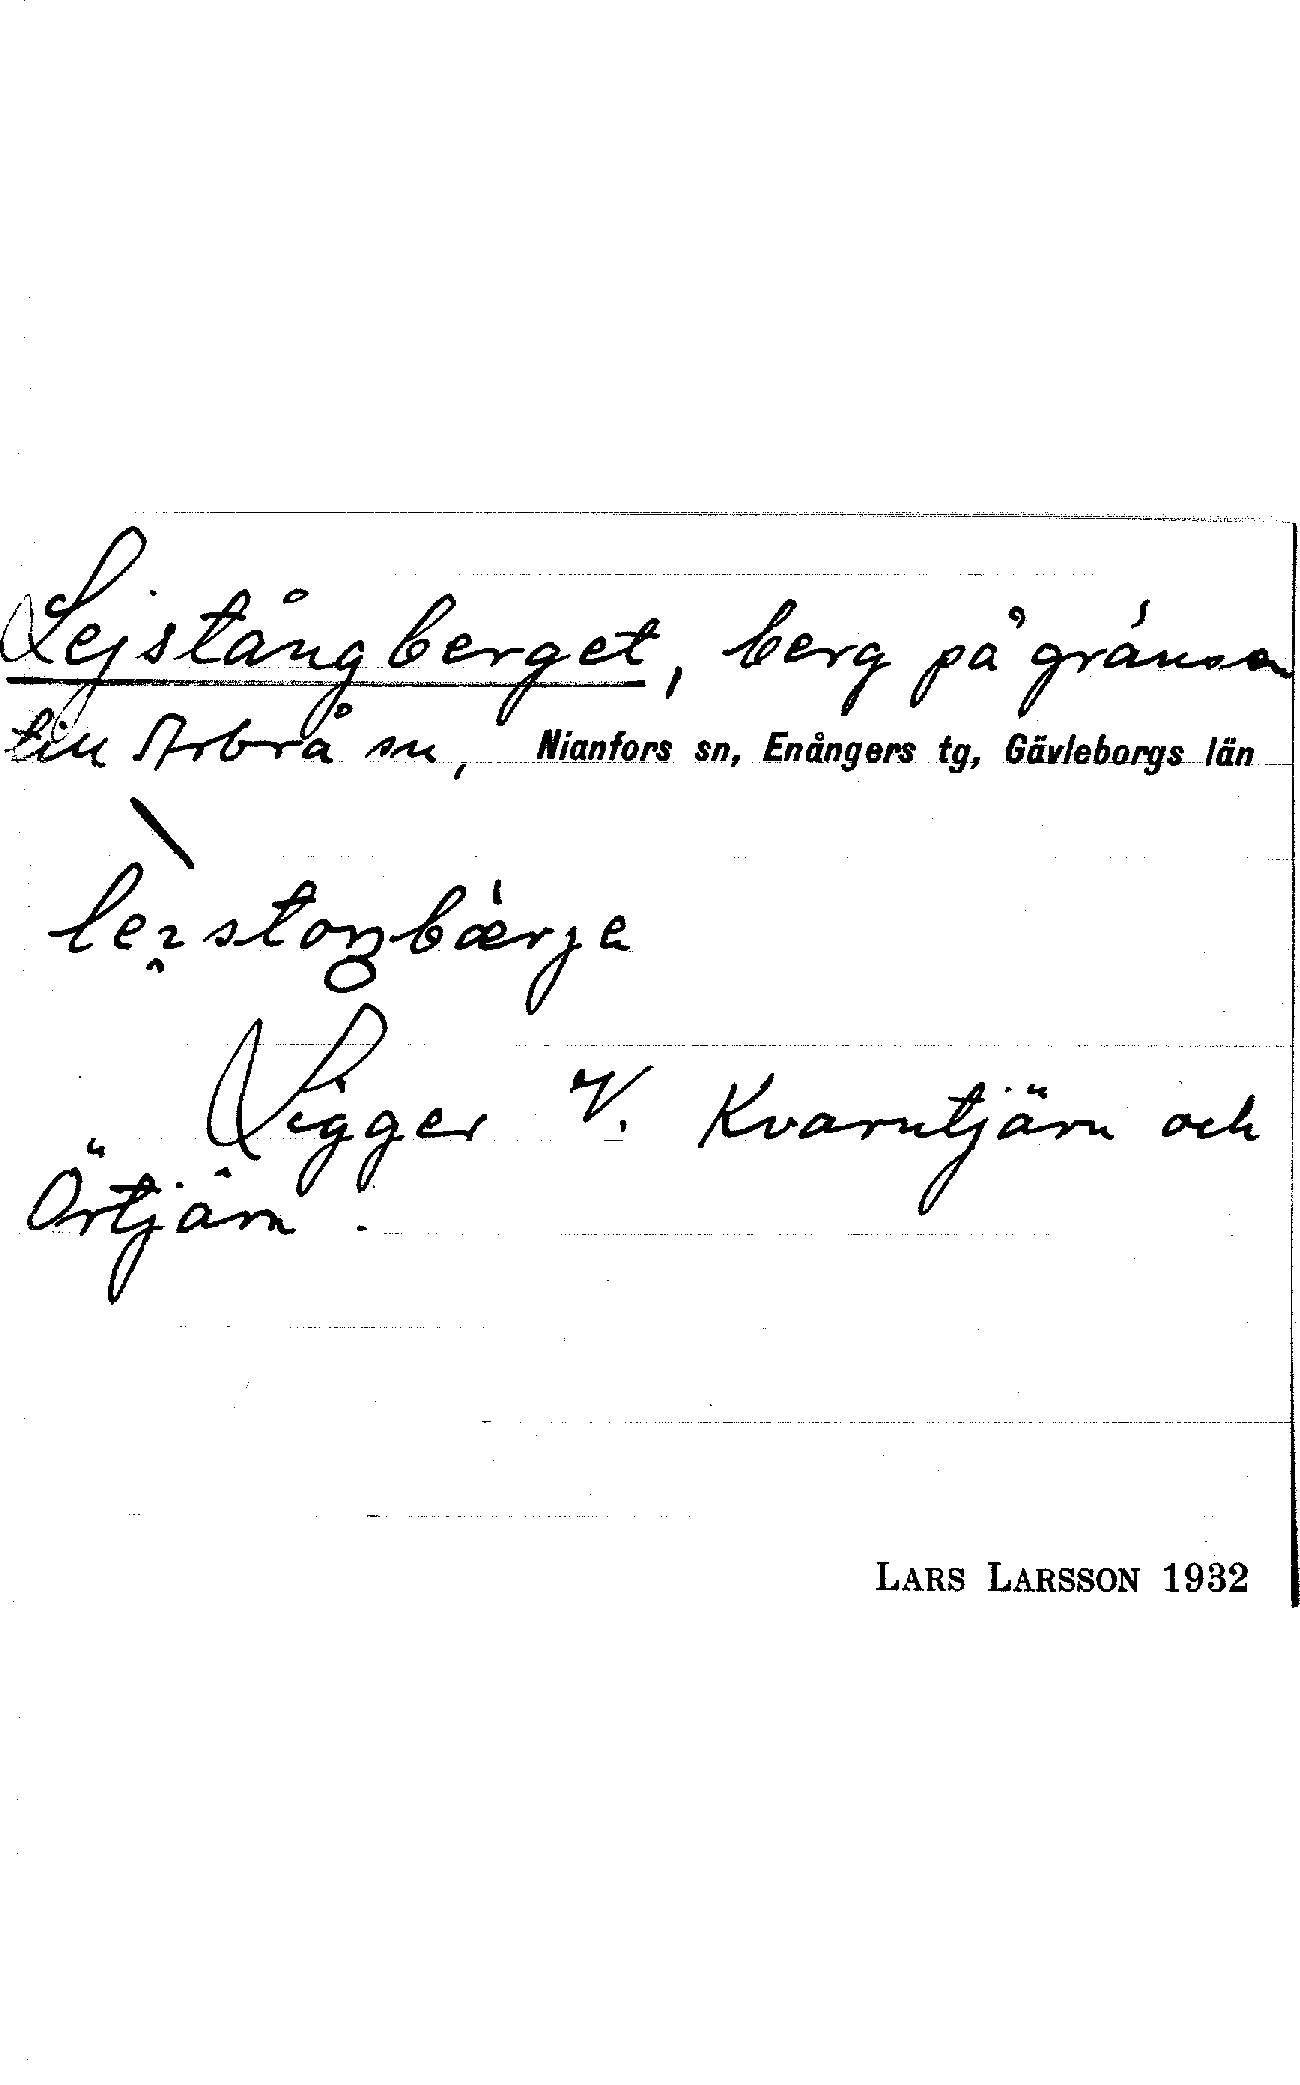 Lejstångberget, berg på gränsen
till Arbrå sn, Nianfors sn, Enångers tg, Gävleborgs län
Ligger V. Kvarntjärn och
Örtjärn.
LARS LARSSON 1932